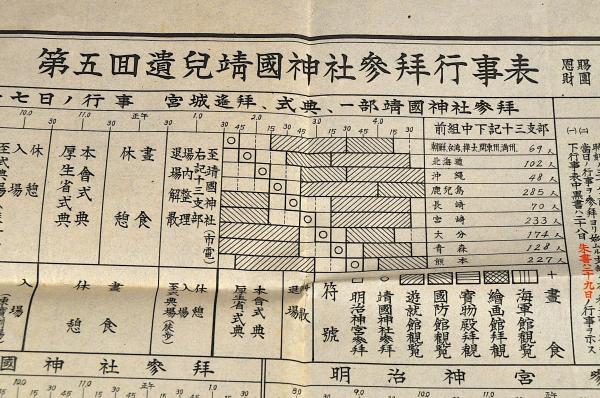 第五回遺兒靖國神社參拜行事表
恩賜
財團
七日ノ行事 宮城遙拜、式典、一部靖國神社參拜
10.0 30 11.0 30 正午 30 1.0 30 2.0 30 45 3.0 15 30 45 4.0 15 30
前組中下記十三支部
朝鮮、台湾、樺太、関東州、満州、 69人
北海道 102人
沖縄 48人
鹿兒島 285人
長崎 70人
宮崎 233人
大分 174人
青森 128人
熊本 227人
休憩
本會式典
厚生省式典
晝食
休憩
退場解散
場内整理
右記十三支部
至靖國神社(市電)
入場
休憩
晝食
至式典場(徒歩)
入場休憩
厚生省式典
本會式典
退場
符號
○ 靖國神社參拜
□ 明治神宮參拜
遊就館観覧
國防館観覧
寶物殿拜観
繪画館拜観
海軍館観覧
十 晝食
(一)
(二)
朱書二十九日
行事ヲホス
國神社參拜
明治神宮參